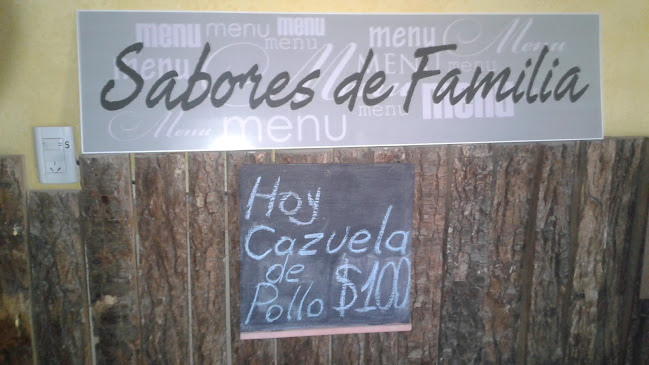 menu menu menu menu menu Menu
menu MENU menu menu
Sabores de Familia
Menu Menu menu
Hoy
Cazuela
de
Pollo $100